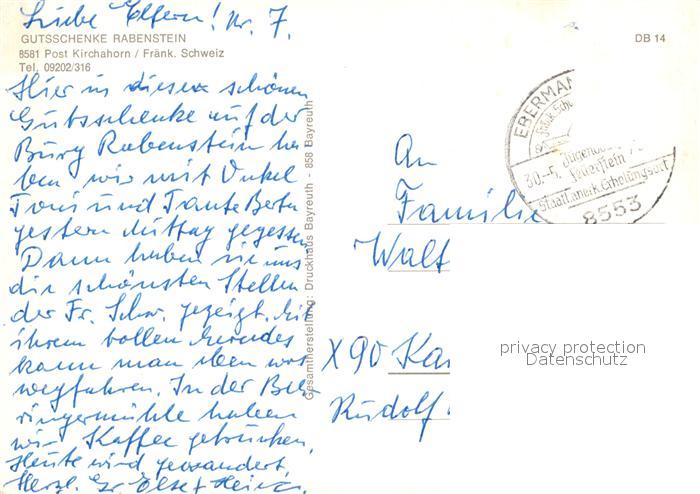 Liebe Eltern! Nr. 7.
GUTSSCHENKE RABENSTEIN
8581 Post Kirchahorn / Fränk. Schweiz
Tel. 09202/316
DB 14
Hier in dieser schönen
Gutsschenke auf der
Burg Rabenstein ha
ben wir mit Onkel
Toni und Tante Berta
gestern Mittag gegessen.
Dann haben sie uns
die schönsten Stellen
der Fr. Schw. gezeigt. Mit
ihrem tollen
kann man eben was
wegfahren. In der Beh
ringermühle haben
wir Kaffee getrunken.
Heute wird gewandert.
Herzl. Gr. Else + Heinz.
Gesamtherstellung: Druckhaus Bayreuth - 858 Bayreuth
EBERMAN
Jugend
Feuerstein
Staatl. anerk. Erholungsort
8553
An
Familie
Walt
X90 Kar
Rudolf
privacy protection
Datenschutz